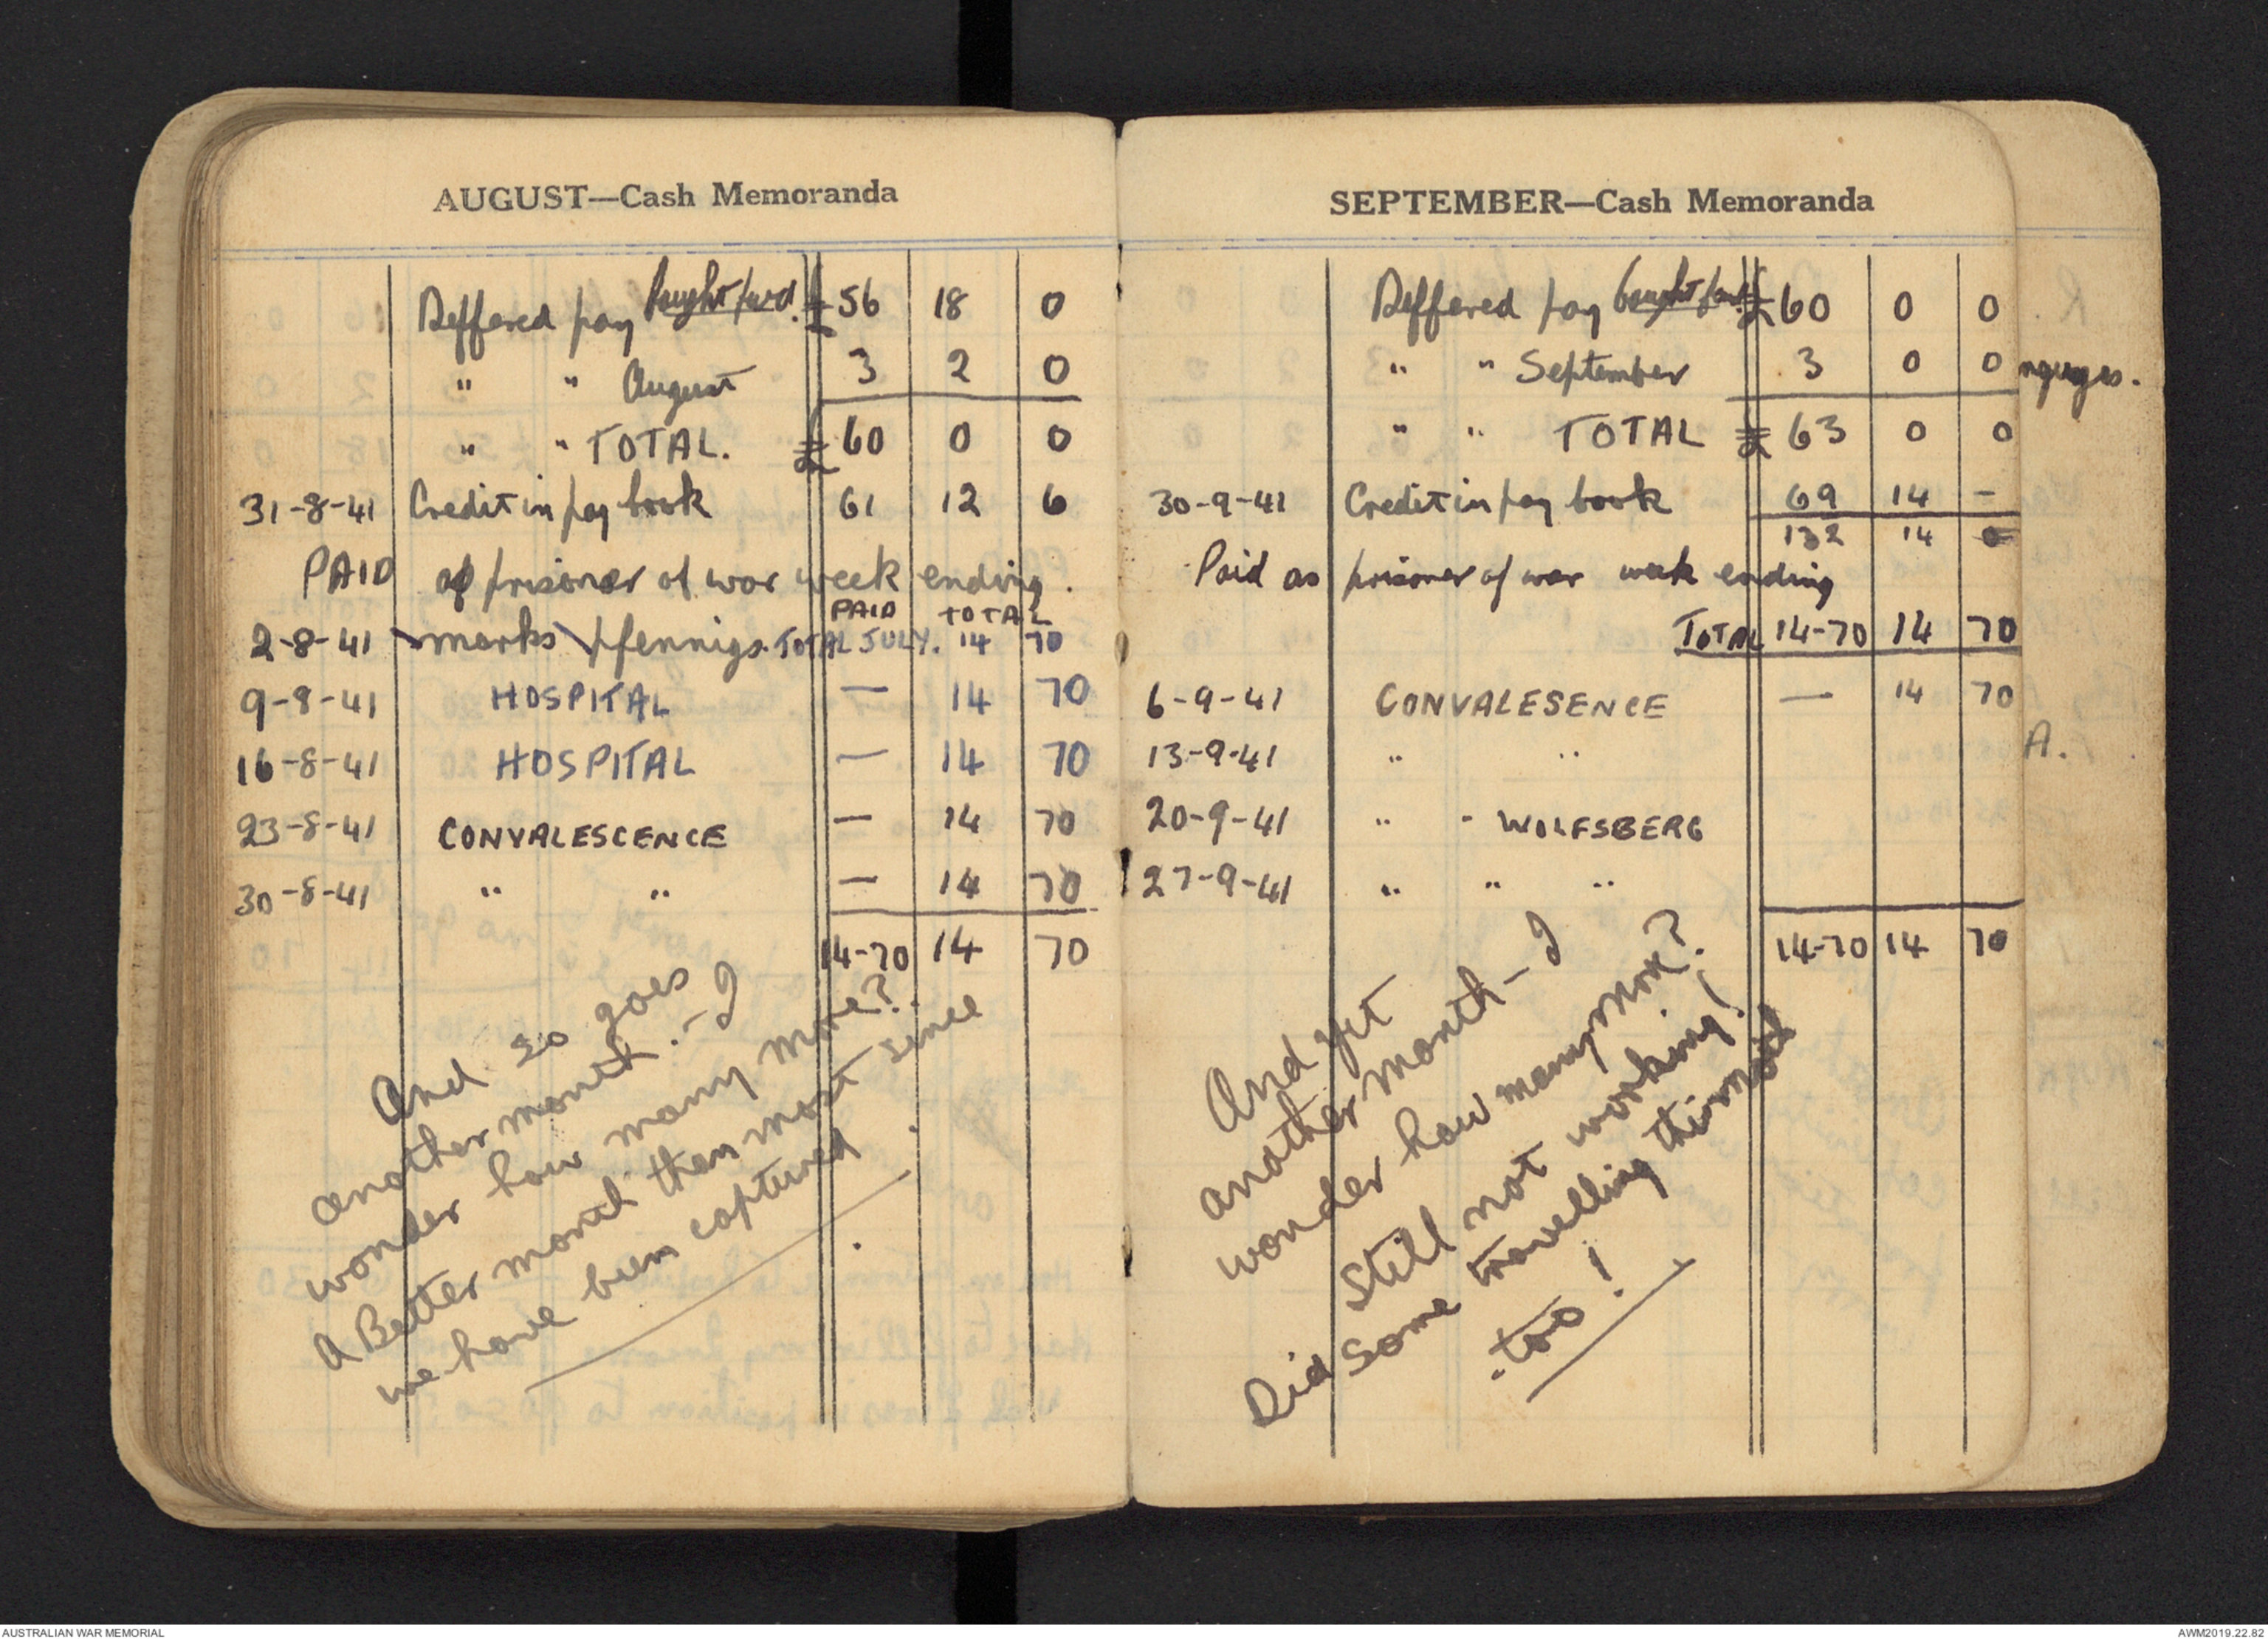 AUGUST—Cash Memoranda
Deffered pay bought fwd. £ 56 18 0
" " August 3 2 0
" " TOTAL. £ 60 0 0
31-8-41 Credit in pay book 61 12 6
PAID as prisoner of war week ending.
PAID TOTAL
2-8-41 marks pfennigs. TOTAL JULY. 14 70
9-8-41 HOSPITAL — 14 70
16-8-41 HOSPITAL — 14 70
23-8-41 CONVALESCENCE — 14 70
30-8-41 " " — 14 70
14-70 14 70
And so goes
another month. - I
wonder how many more?
A Better month then most since
we have been captured.
SEPTEMBER—Cash Memoranda
Deffered pay bought fwd £ 60 0 0
" " September 3 0 0
" " TOTAL £ 63 0 0
30-9-41 Credit in pay book 69 14 -
132 14 0
Paid as prisoner of war week ending
TOTAL 14-70 14 70
6-9-41 CONVALESENCE — 14 70
13-9-41 " "
20-9-41 " - WOLFSBERG
27-9-41 " " "
14-70 14 70
And yet
another month - I
wonder how many more?
Still not working!
Did some travelling this month
too!
nguages.
A.
AUSTRALIAN WAR MEMORIAL
AWM2019.22.82